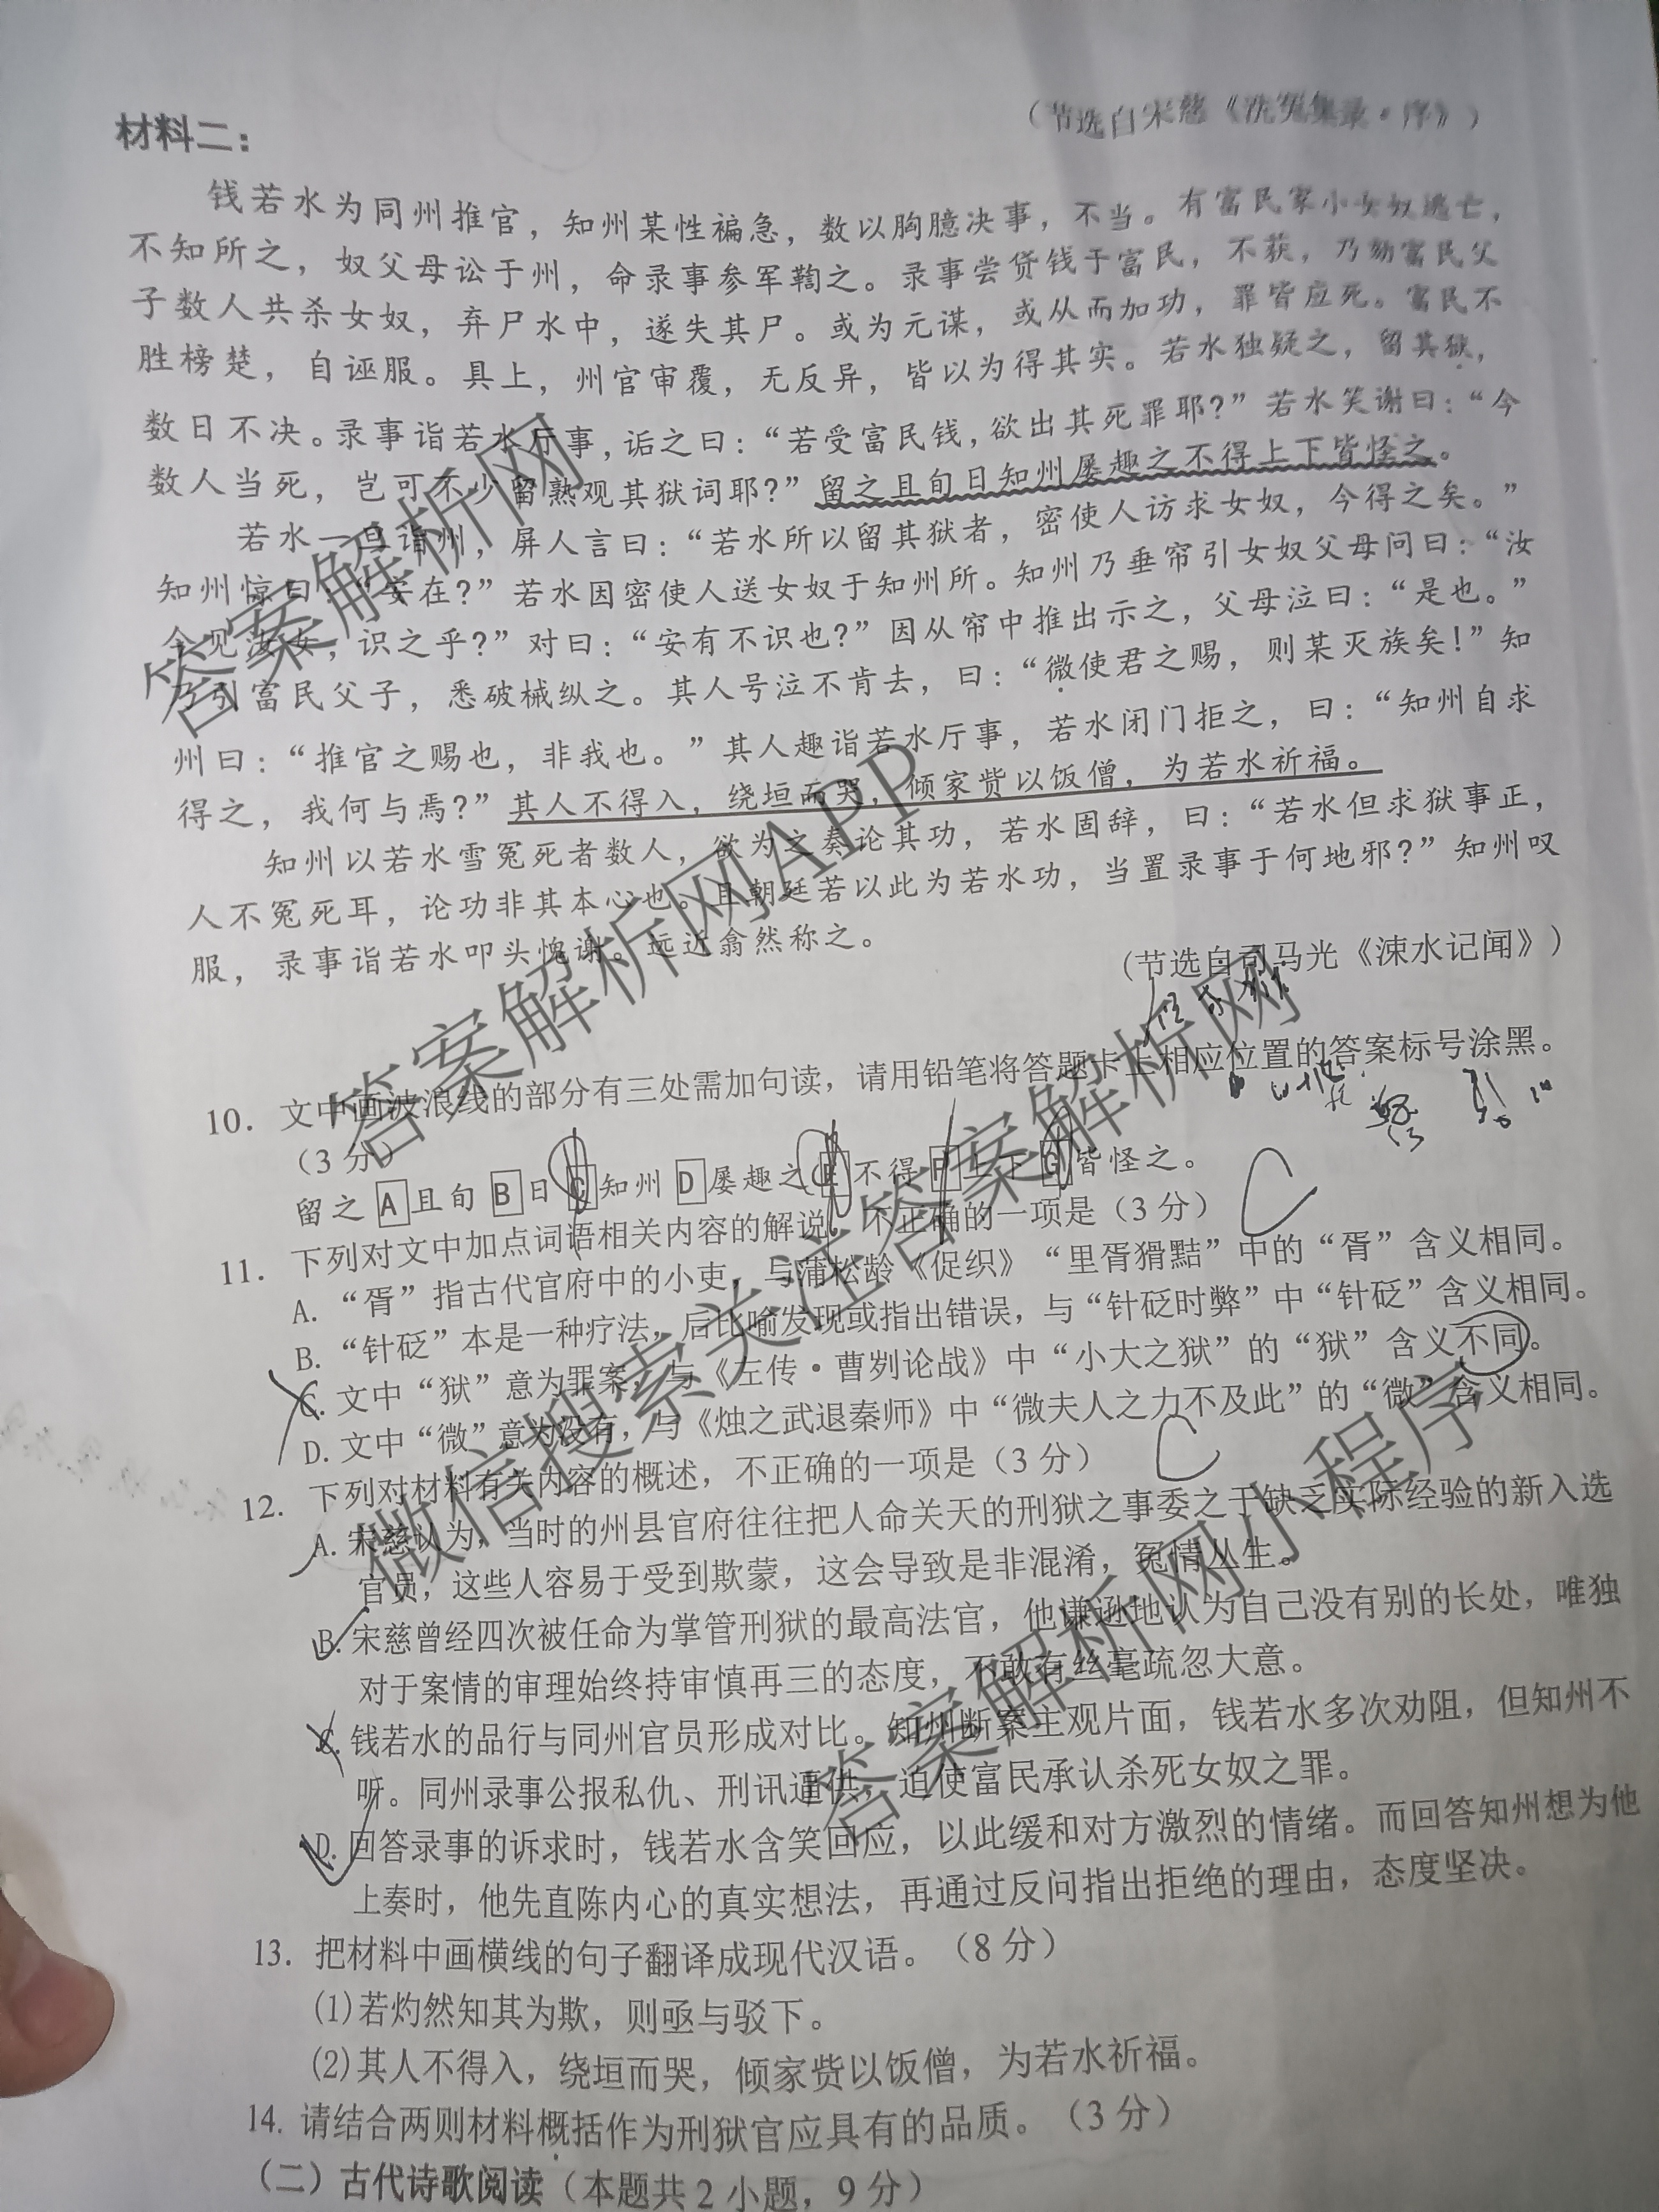 （节选自宋慈《洗冤集录·序》）
材料二：
钱若水为同州推官，知州某性褊急，数以胸臆决事，不当。有富民家小女奴逃亡，
不知所之，奴父母讼于州，命录事参军鞫之。录事尝贷钱于富民，不获，乃劾富民父
子数人共杀女奴，弃尸水中，遂失其尸。或为元谋，或从而加功，罪皆应死。富民不
胜榜楚，自诬服。具上，州官审覆，无反异，皆以为得其实。若水独疑之，留其狱，
数日不决。录事诣若水厅事，诟之曰：“若受富民钱，欲出其死罪耶？”若水笑谢曰：“今
数人当死，岂可不少留熟观其狱词耶？”留之且旬日知州屡趣之不得上下皆怪之。
若水一旦诣州，屏人言曰：“若水所以留其狱者，密使人访求女奴，今得之矣。”
知州惊曰：“安在？”若水因密使人送女奴于知州所。知州乃垂帘引女奴父母问曰：“汝
今见汝女，识之乎？”对曰：“安有不识也？”因从帘中推出示之，父母泣曰：“是也。”
乃引富民父子，悉破械纵之。其人号泣不肯去，曰：“微使君之赐，则某灭族矣！”知
州曰：“推官之赐也，非我也。”其人趣诣若水厅事，若水闭门拒之，曰：“知州自求
得之，我何与焉？”其人不得入，绕垣而哭，倾家赀以饭僧，为若水祈福。
知州以若水雪冤死者数人，欲为之奏论其功，若水固辞，曰：“若水但求狱事正，
人不冤死耳，论功非其本心也。且朝廷若以此为若水功，当置录事于何地邪？”知州叹
服，录事诣若水叩头愧谢。远近翕然称之。
（节选自司马光《涑水记闻》）
10. 文中画波浪线的部分有三处需加句读，请用铅笔将答题卡上相应位置的答案标号涂黑。
（3分）
留之A且旬B日C知州D屡趣之E不得F上下G皆怪之。
11. 下列对文中加点词语相关内容的解说，不正确的一项是（3分） C
A. “胥”指古代官府中的小吏，与蒲松龄《促织》“里胥猾黠”中的“胥”含义相同。
B. “针砭”本是一种疗法，后比喻发现或指出错误，与“针砭时弊”中“针砭”含义相同。
C. 文中“狱”意为罪案，与《左传·曹刿论战》中“小大之狱”的“狱”含义不同。
D. 文中“微”意为没有，与《烛之武退秦师》中“微夫人之力不及此”的“微”含义相同。
12. 下列对材料有关内容的概述，不正确的一项是（3分） C
A. 宋慈认为，当时的州县官府往往把人命关天的刑狱之事委之于缺乏实际经验的新入选
官员，这些人容易于受到欺蒙，这会导致是非混淆，冤情丛生。
B. 宋慈曾经四次被任命为掌管刑狱的最高法官，他谦逊地认为自己没有别的长处，唯独
对于案情的审理始终持审慎再三的态度，不敢有丝毫疏忽大意。
C. 钱若水的品行与同州官员形成对比。知州断案主观片面，钱若水多次劝阻，但知州不
听。同州录事公报私仇、刑讯逼供，迫使富民承认杀死女奴之罪。
D. 回答录事的诉求时，钱若水含笑回应，以此缓和对方激烈的情绪。而回答知州想为他
上奏时，他先直陈内心的真实想法，再通过反问指出拒绝的理由，态度坚决。
13. 把材料中画横线的句子翻译成现代汉语。（8分）
(1)若灼然知其为欺，则亟与驳下。
(2)其人不得入，绕垣而哭，倾家赀以饭僧，为若水祈福。
14. 请结合两则材料概括作为刑狱官应具有的品质。（3分）
（二）古代诗歌阅读（本题共2小题，9分）
答案解析网
答案解析网APP
微信搜索关注答案解析网
答案解析网小程序